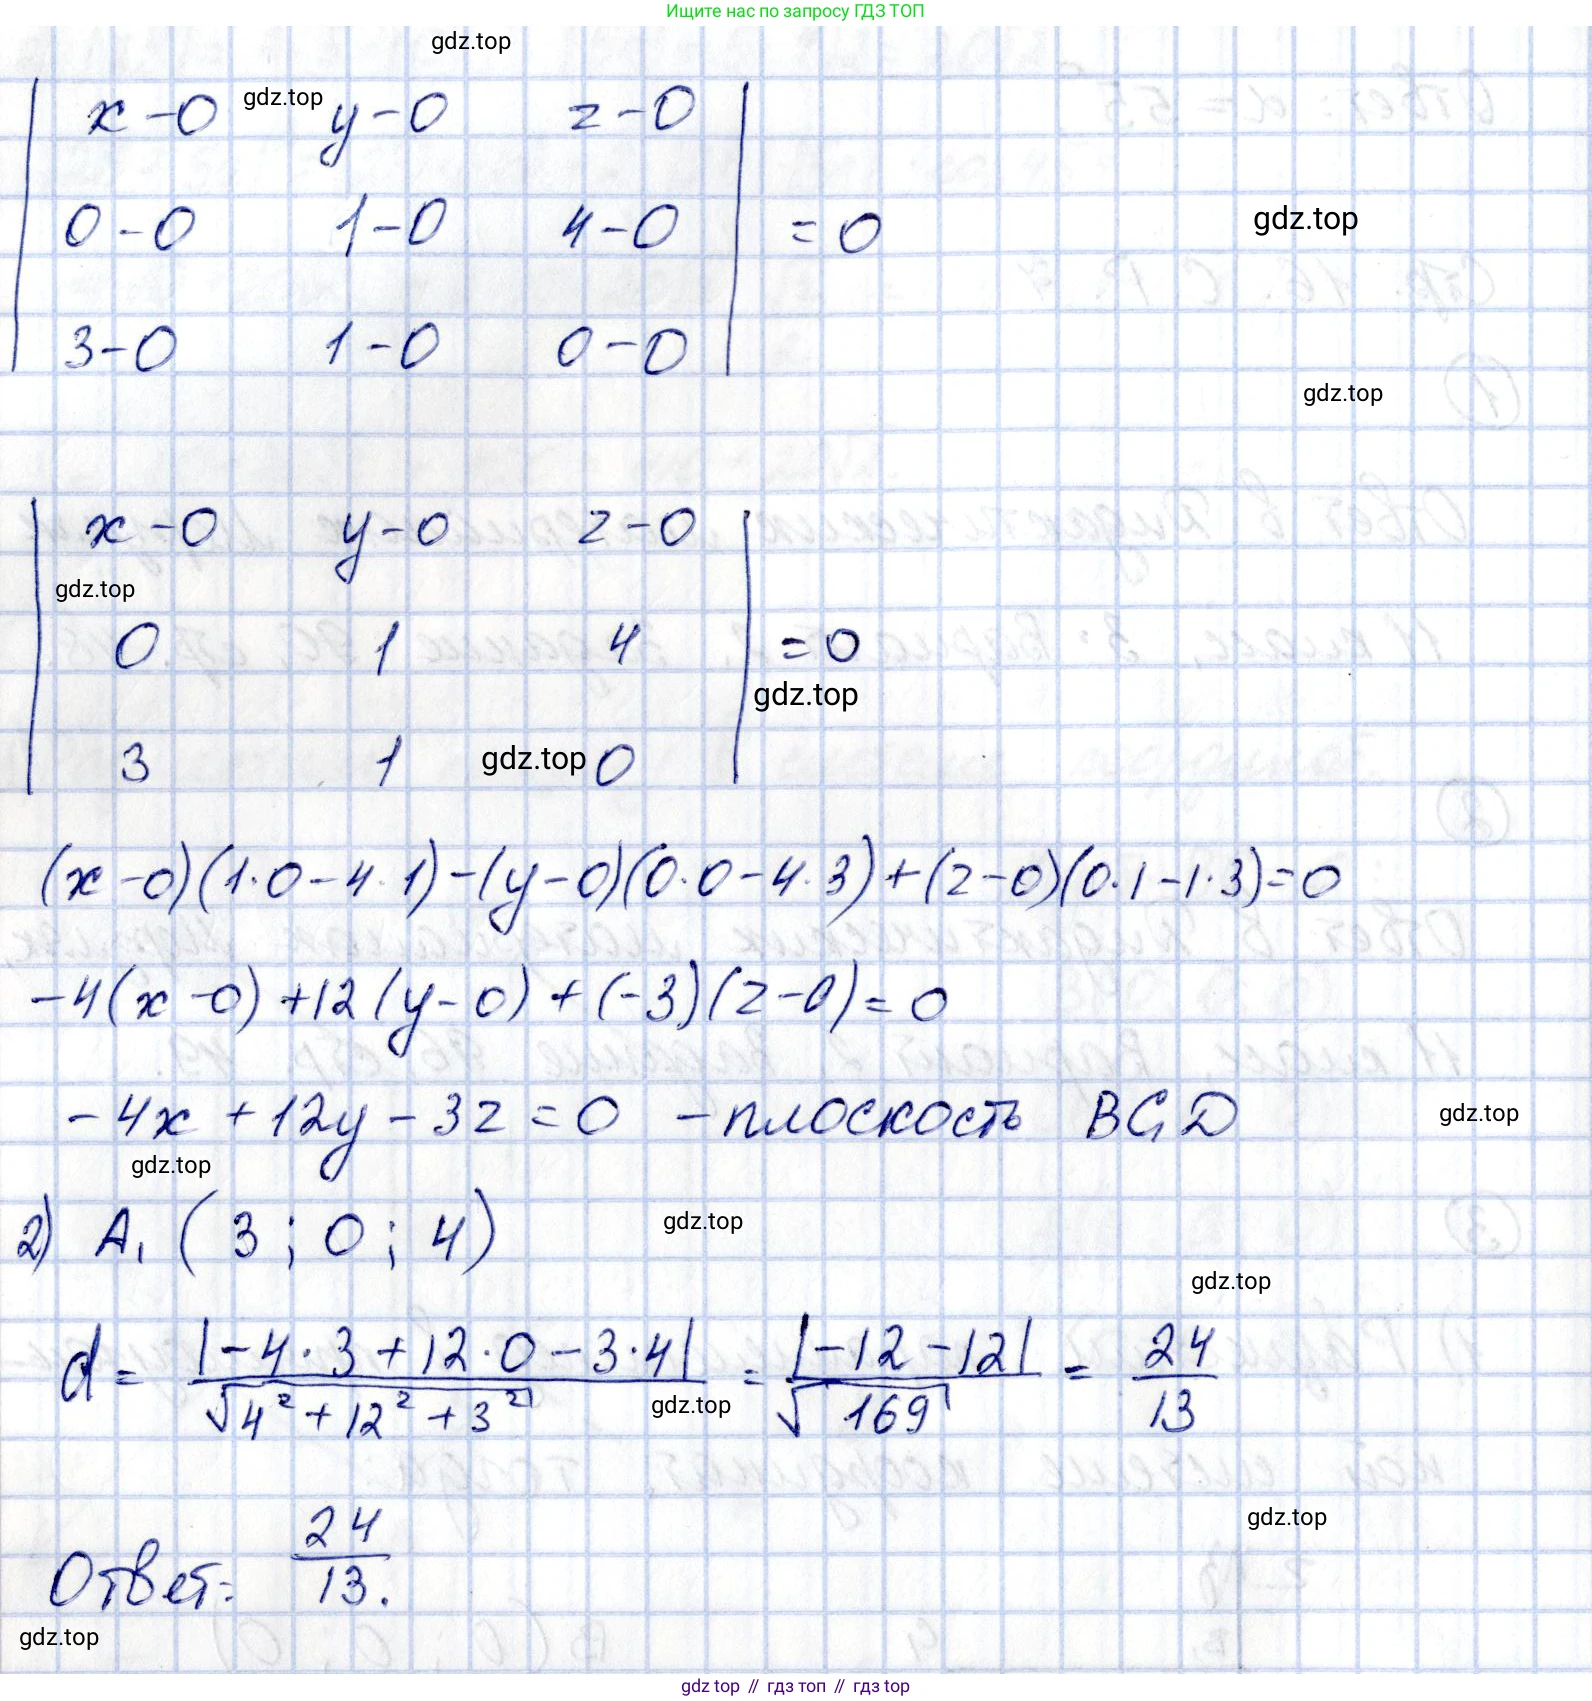 Ищите нас по запросу ГДЗ ТОП
gdz.top
| x-0 gdz.top y-0 z-0 |
| 0-0 1-0 4-0 | = 0 gdz.top
| 3-0 1-0 0-0 |
gdz.top
| x-0 y-0 z-0 |
gdz.top
| 0 1 4 | = 0
gdz.top
| 3 1 gdz.top 0 |
(x-0)(1·0-4·1)-(y-0)(0·0-4·3)+(z-0)(0·1-1·3)=0
-4(x-0)+12(y-0)+(-3)(z-0)=0
-4x+12y-3z=0 - плоскость BC₁D gdz.top
gdz.top
2) A₁ (3; 0; 4) gdz.top
gdz.top
d = |-4·3+12·0-3·4| / √(4²+12²+3²) = |-12-12| / √169 = 24/13
gdz.top
gdz.top
Ответ: 24/13.
gdz.top
gdz.top // гдз топ // гдз top